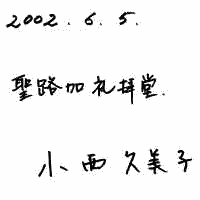 2002.6.5.
聖路加礼拝堂.
小西久美子